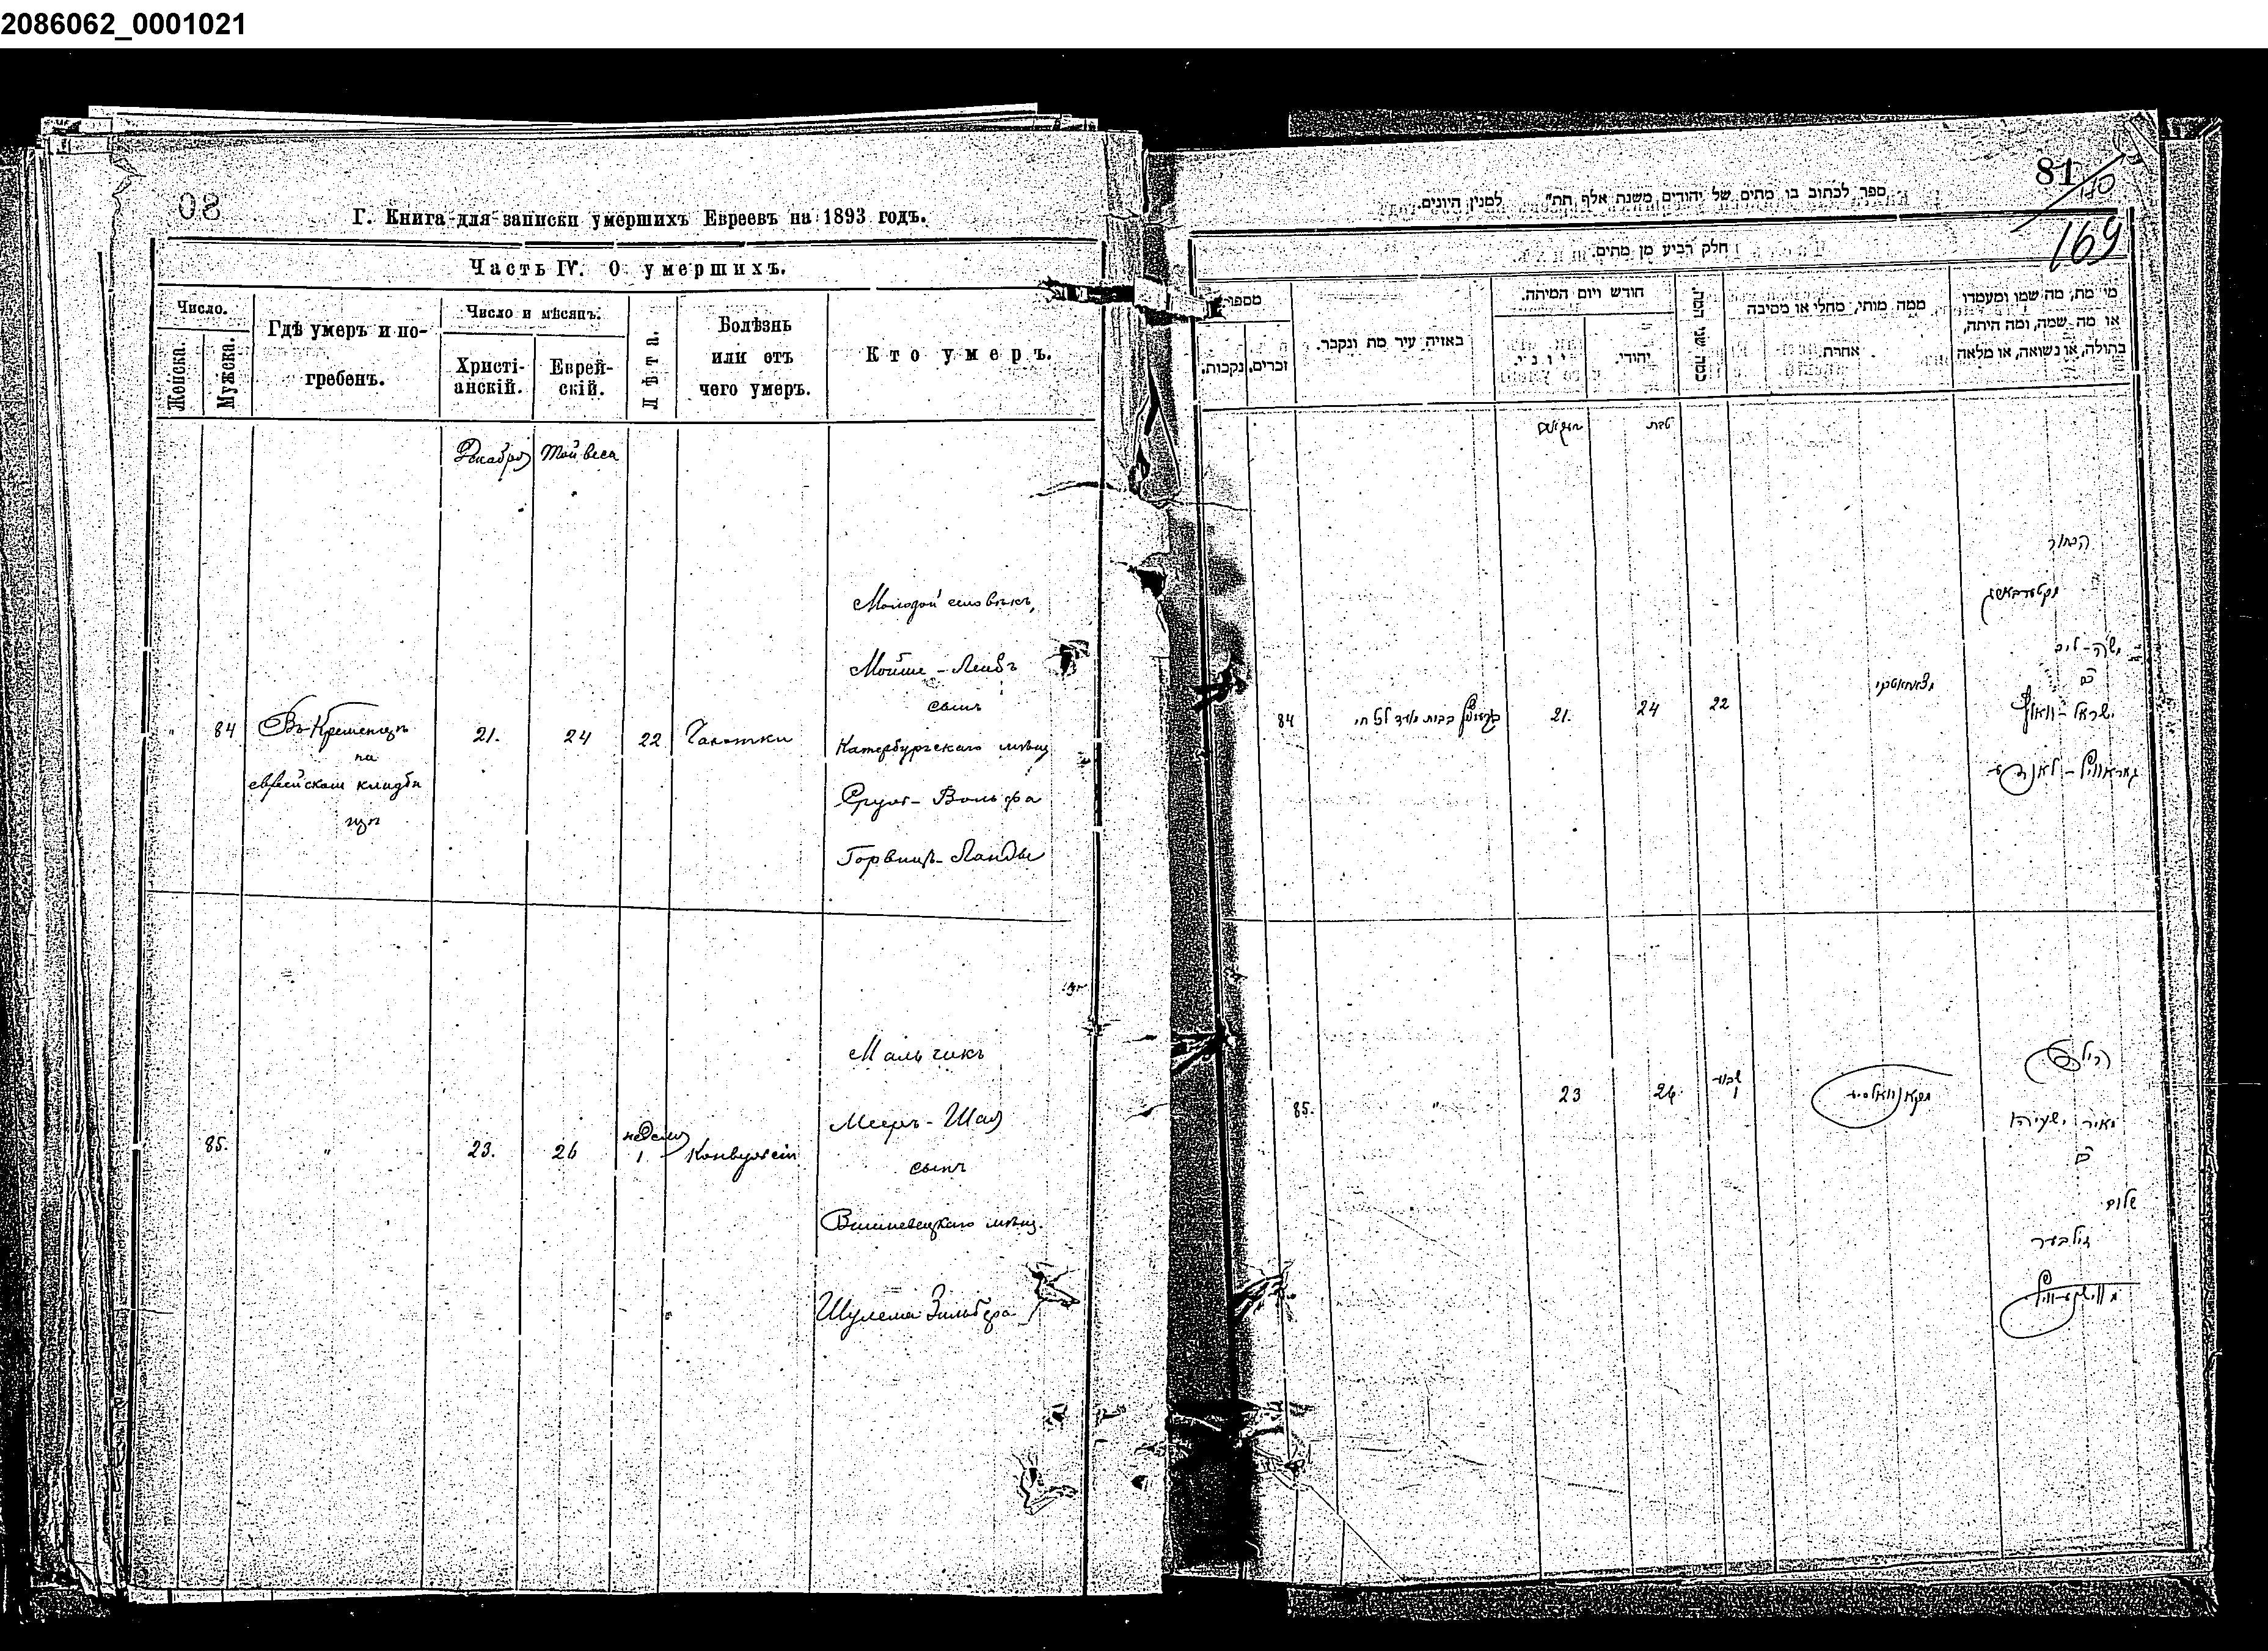 2086062_0001021
80
Г. Книга для записки умершихъ Евреевъ на 1893 годъ.
Часть IV. О умершихъ.
Число.
Женска.
Мужеска.
Гдѣ умеръ и по-
гребенъ.
Число и мѣсяцъ.
Христі-
анскій.
Еврей-
скій.
Лѣта.
Болѣзнь
или отъ
чего умеръ.
Кто умеръ.
Декабря
84
Въ Кременцѣ
на
еврейском кладби
щѣ
21.
24
22
Чахотки
Молодой человѣкъ,
Мойше-Лейбъ
сынъ
Катербургскаго мѣщ
Сруля-Вольфа
Горвицъ-Ланды
85.
"
23.
26
недѣля
1.
Конвульсіи
Мальчикъ
Мееръ-Шая
сынъ
Вишневецкаго мѣщ.
Шулема Зильбера
81
169
ספר לכתוב בו מתים של יהודים משנת אלף תת" למנין היונים.
חלק רביע מן מתים.
מספר
נקבות.
זכרים.
באזיה עיר מת ונקבר.
חודש ויום המיתה.
יוני.
יהודי.
כמה שני המת.
ממה מותו, מחלי או מסיבה
אחרת.
מי מת, מה שמו ומעמדו
או מה שמה, ומה היתה,
בתולה, או נשואה, או מלאה
טבת
84
21.
24
22
הבחור
משה-ליב
ב"ר
ישראל-וואלף
85.
"
23
26
שבוע
1
הילד
מאיר ישעיהו
ב"ר
שלום
זילבער